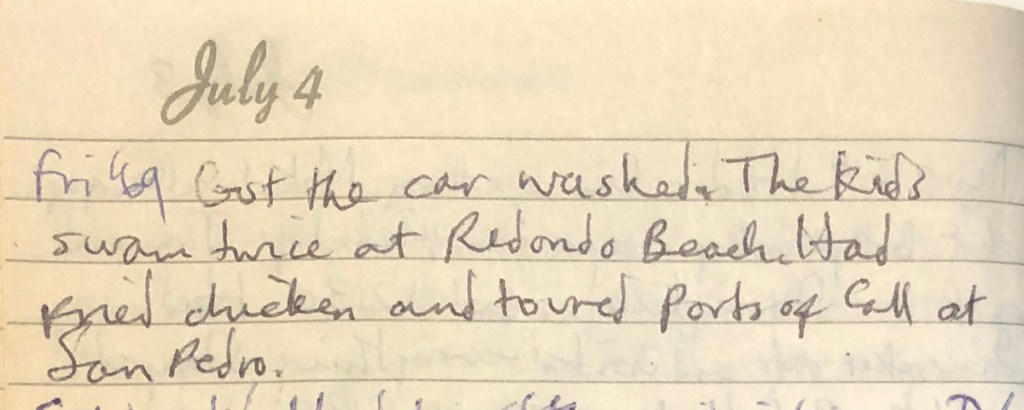 July 4
Fri '69 Got the car washed. The kids
swam twice at Redondo Beach. Had
fried chicken and toured Ports of Call at
San Pedro.